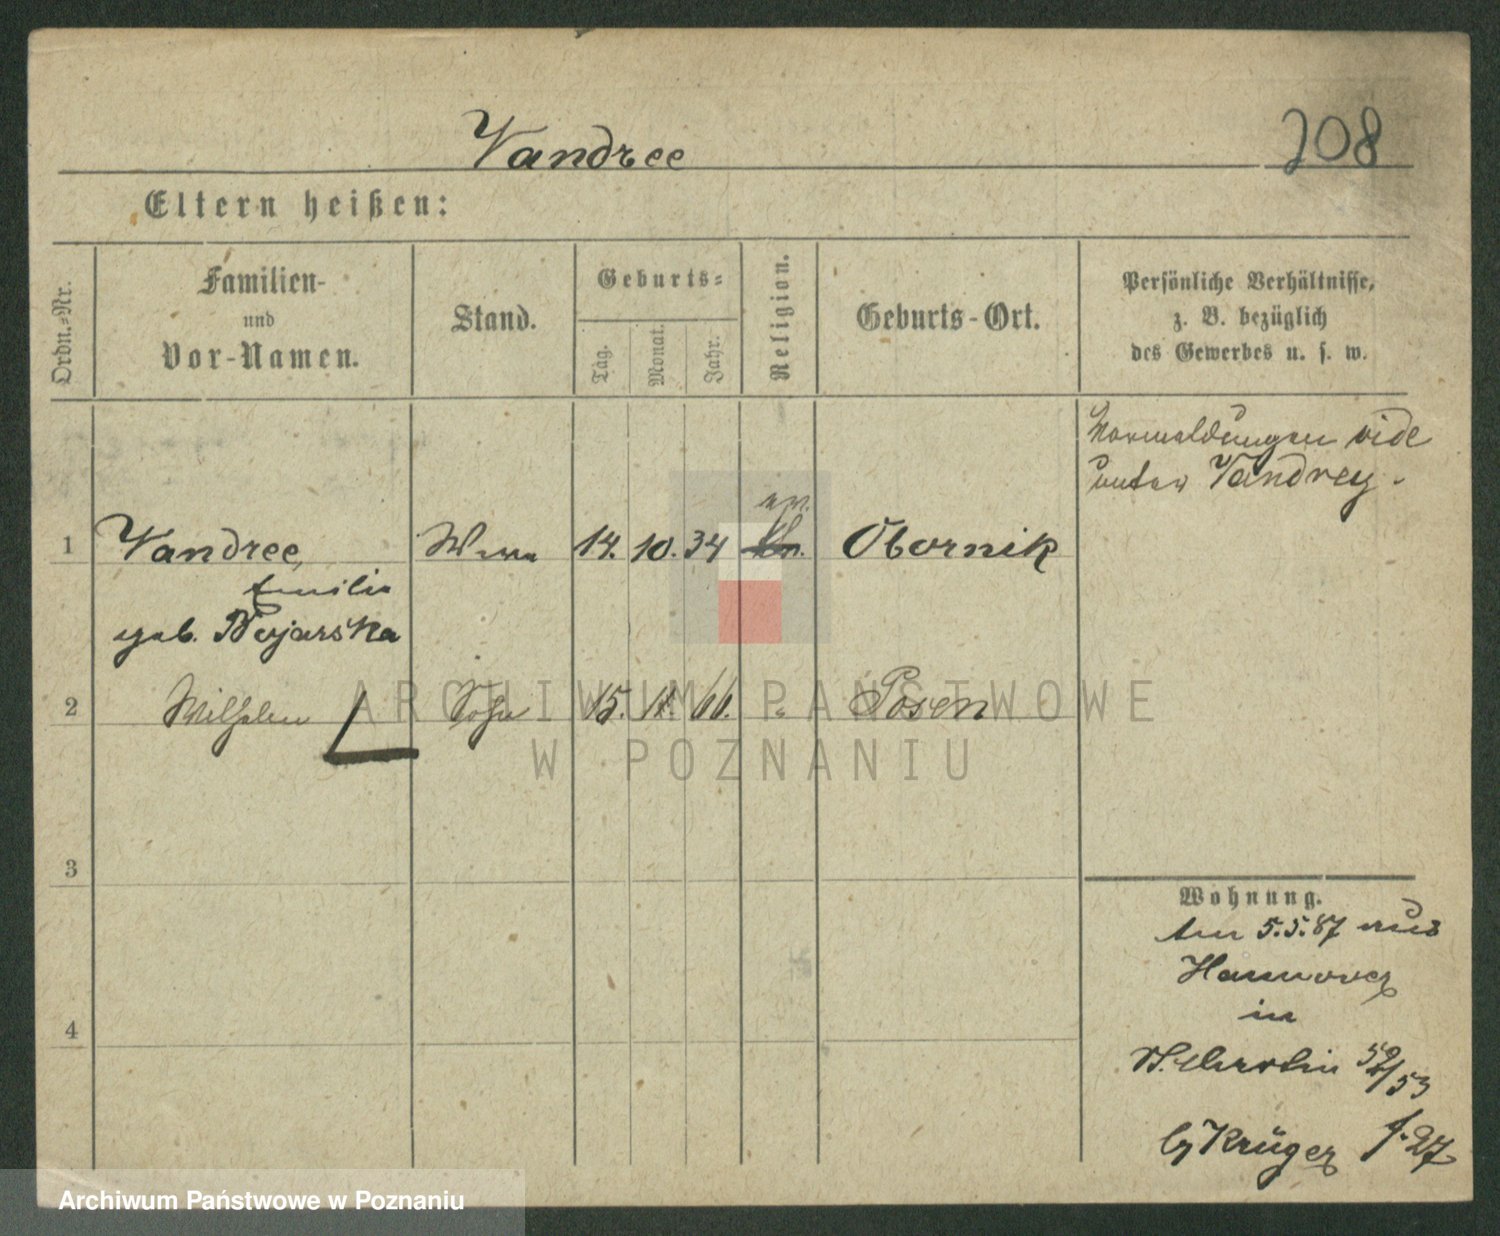 Vandree
208
Eltern heißen:
Ordn.-Nr.
Familien-
und
Vor-Namen.
Stand.
Geburts-
Tag.
Monat.
Jahr.
Religion.
Geburts-Ort.
Persönliche Verhältnisse,
z. B. bezüglich
des Gewerbes u. s. w.
vide
unter Vandrey.
1
Vandree,
14. 10. 34
ev.
Obornik
Emilie
geb.
2
Wilhelm
Sohn
15. 11. 66.
"
Posen
3
4
Wohnung.
Am 5.5.87 aus
Hannover
in
St. Martin 52/53
b/ Krüger f. 27
ARCHIWUM PAŃSTWOWE
W POZNANIU
Archiwum Państwowe w Poznaniu